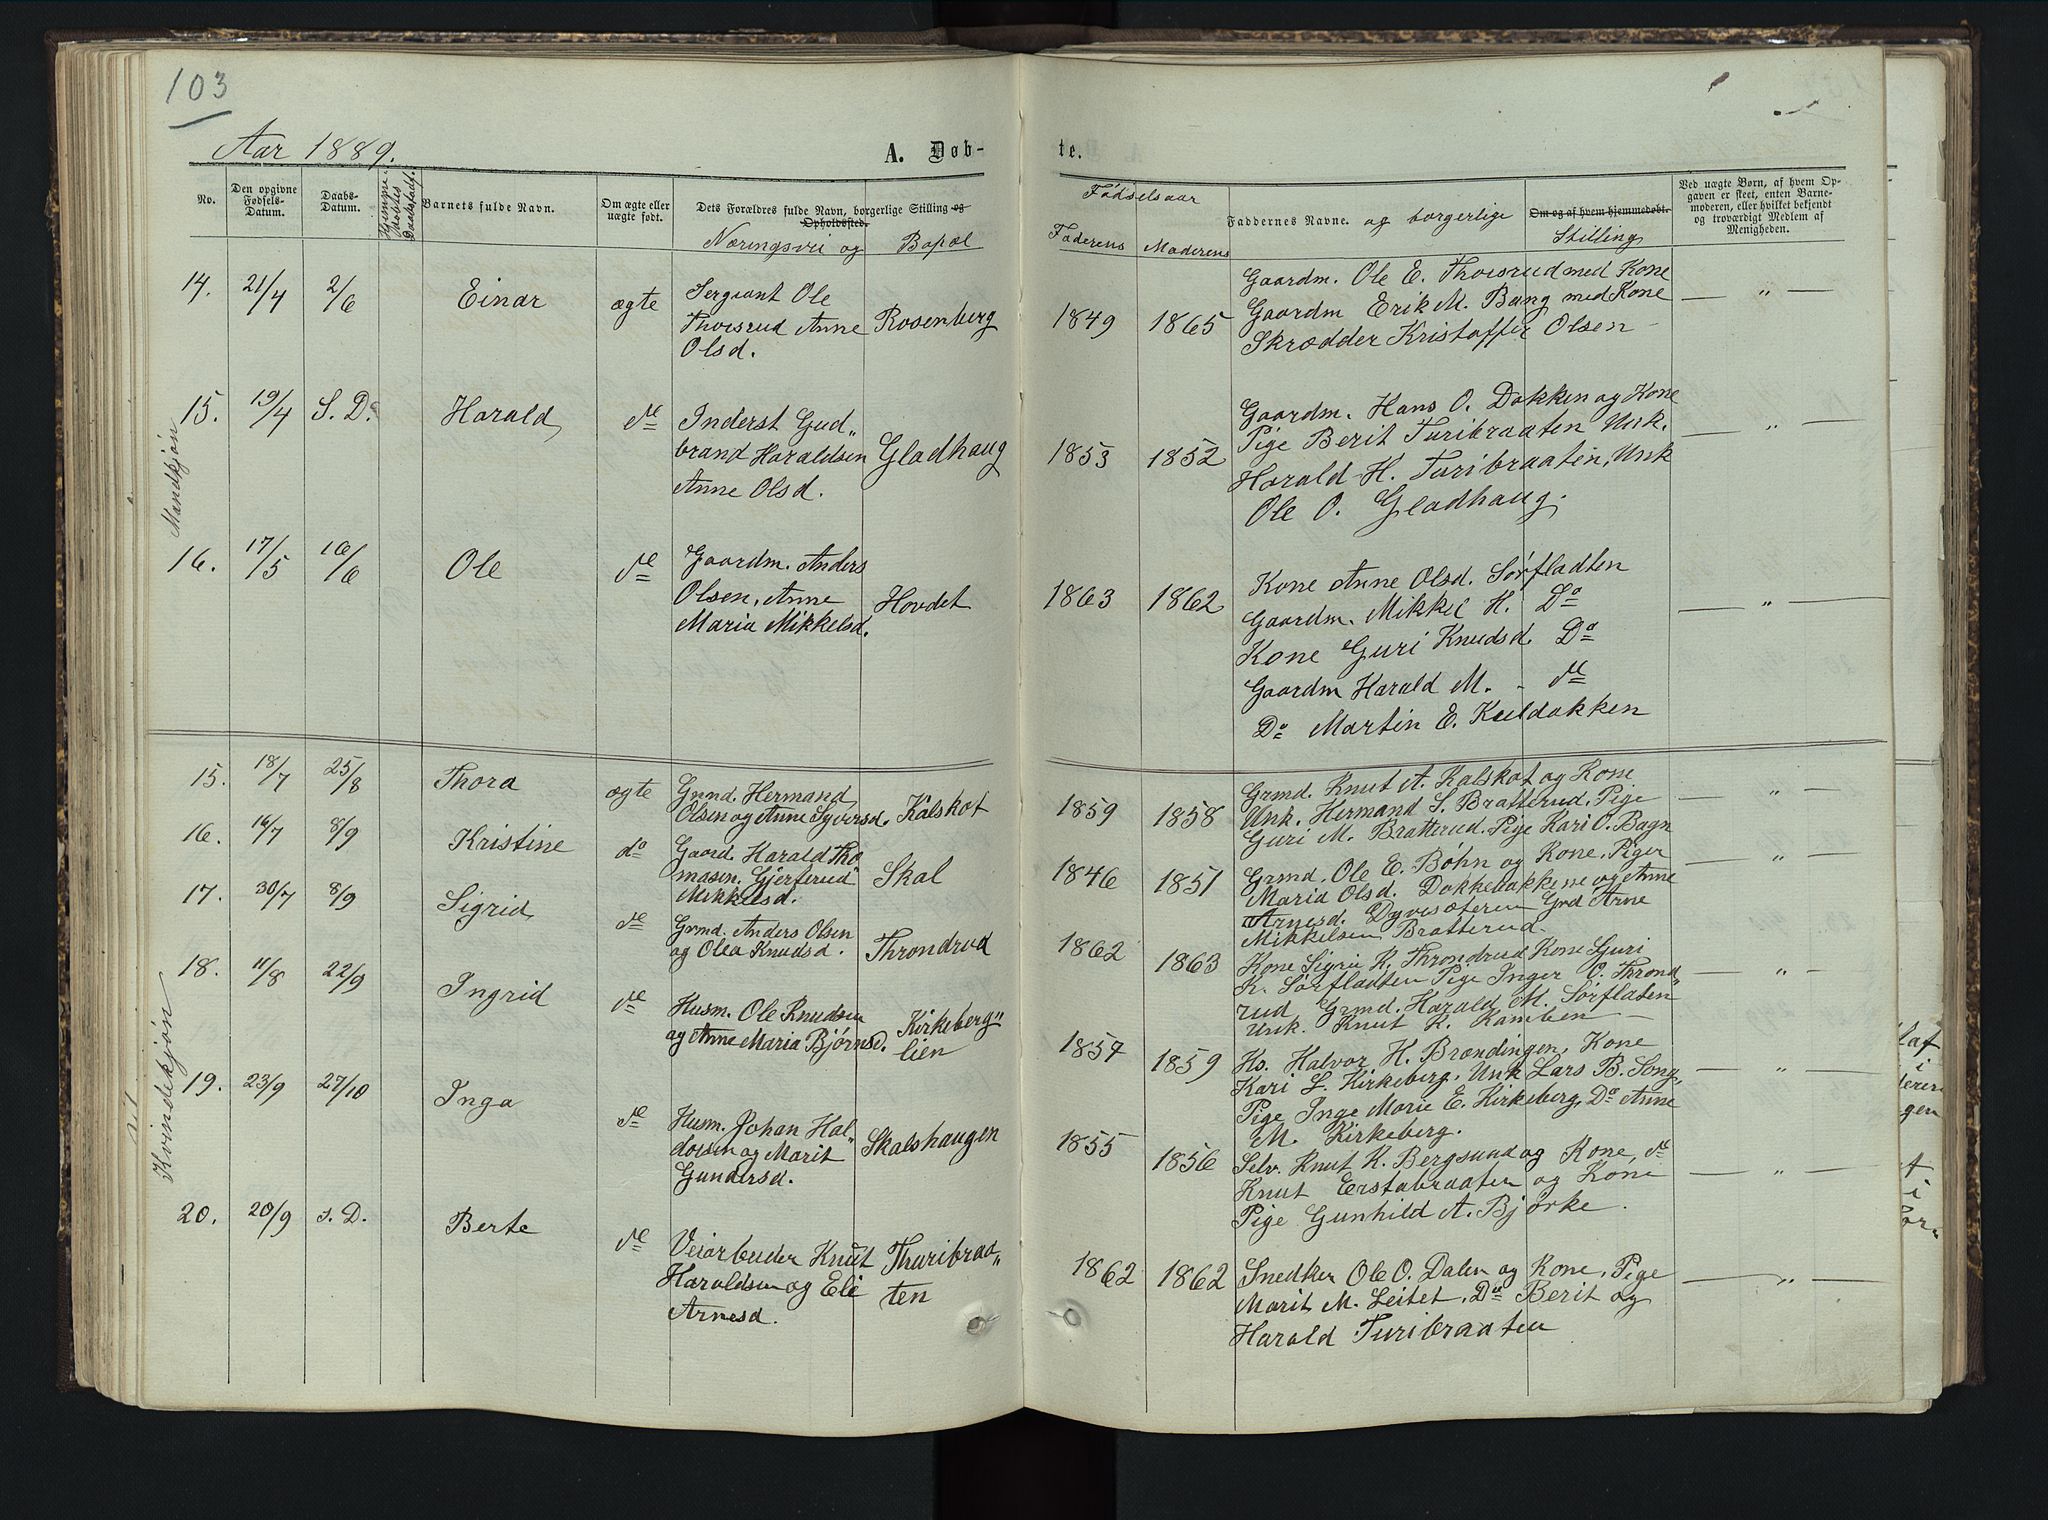 103
Aar 1889.
A. Døb-
te.
No.
Den opgivne Fødsels-Datum.
Daabs-Datum.
Hjemmedøbtes Daabsstadf.
Barnets fulde Navn.
Om ægte eller uægte født.
Dets Forældres fulde Navn, borgerlige Stilling og Opholdssted.
Næringsvei og Bopæl
Fødselsaar
Faderens
Moderens
Faddernes Navne. og borgerlige
Om og af hvem hjemmedøbt.
Stilling
Ved uægte Børn, af hvem Op-
gaven er skeet, enten Barne-
moderen, eller hvilket bekjendt
og troværdigt Medlem af
Menigheden.
Mandkjøn
14. 21/4 2/6 Einar ægte
Sergiant Ole
Thoesrud Anne
Olsd.
Rosenberg
1849 1865
Gaardm. Ole E. Thoesrud med Kone
Gaardm Erik M. Bang med Kone
Skrædder Kristoffer Olsen
— " —
15. 19/4 S. D. Harald de
Inderst Gud„
brand Haraldsen
Anne Olsd.
Gladhaug
1853 1852
Gaardm. Hans O. Dokken og Kone
Pige Berit Turibraaten Unk.
Harald H. Turibraaten, Unk
Ole O. Gladhaug.
— " —
16. 17/5 16/6 Ole de
Gaardm. Anders
Olsen, Anne
Maria Mikkelsd.
Hovdet
1863 1862
Kone Anne Olsd. Sørfladten
Gaardm. Mikkel H. Do
Kone Guri Knudsd. Do
Gaardm Harald M. - de
Do Martin E. Kuldakken
— " —
Kvindekjøn
15. 18/7 25/8 Thora ægte
Grmd. Hermand
Olsen og Anne Syversd.
Kalskot
1859 1858
Grmd. Knut A. Kalskot og Kone
Unk. Hermand S. Bratterud, Pige
Guri M. Bratterud. Pige Kari O. Bagn
— " —
16. 16/7 8/9 Kristine do
Gaard. Harald Tho
masen. Gjerferud
Mikkelsd.
Skal
1846 1851
Grmd. Ole E. Bøhn og Kone, Piger
Maria Olsd. Dokkebakkene og Anne
Arnesd. Dyvesæteren Grd Arne
Mikkelsen Bratterud.
— " —
17. 30/7 8/9 Sigrid de
Grmd. Anders Olsen
og Olea Knudsd.
Throndrud
1862 1863
Kone Sigrii K. Throndrud Kone Guri
K. Sørfladten Pige Inger O. Thrond„
rud Grmd. Harald M. Sørflaten
Unk. Knut K. Kamben
— " —
18. 11/8 22/9 Ingrid de
Husm. Ole Knudsen
og Anne Maria Bjørnsd.
Kirkeberg„
lien
1857 1859
Hs. Halvor H. Brændingen, Kone
Kari L. Kirkeberg, Unk Lars B. Song,
Pige Inge Marie E. Kirkeberg, Do Anne
M. Kirkeberg.
— " —
19. 23/9 27/10 Inga de
Husm. Johan Hal„
dorsen og Marit
Gundersd.
Skalshaugen
1855 1856
Selv. Knut K. Bergsund og Kone, de
Knut Erstabraaten og Kone
Pige Gunhild A. Bjørke.
— " —
20. 20/9 s. D. Berte de
Veiarbeider Knut
Haraldsen og Eli
Arnesd.
Thuribraa„
ten
1862 1862
Snedker Ole O. Dalen og Kone, Pige
Marit M. Leitet, Do Berit og
Harald Turibraaten
— " —